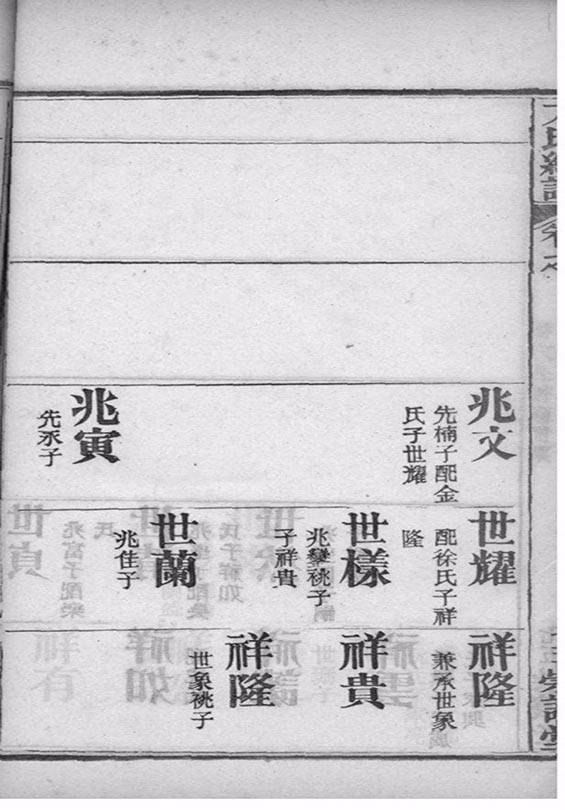 兆文
先楠子配金
氏子世耀
兆寅
先丞子
世耀
配徐氏子祥
隆
世樣
兆祧子
子祥貴
世蘭
兆佳子
祥隆
兼承世象
祥貴
祥隆
世象祧子